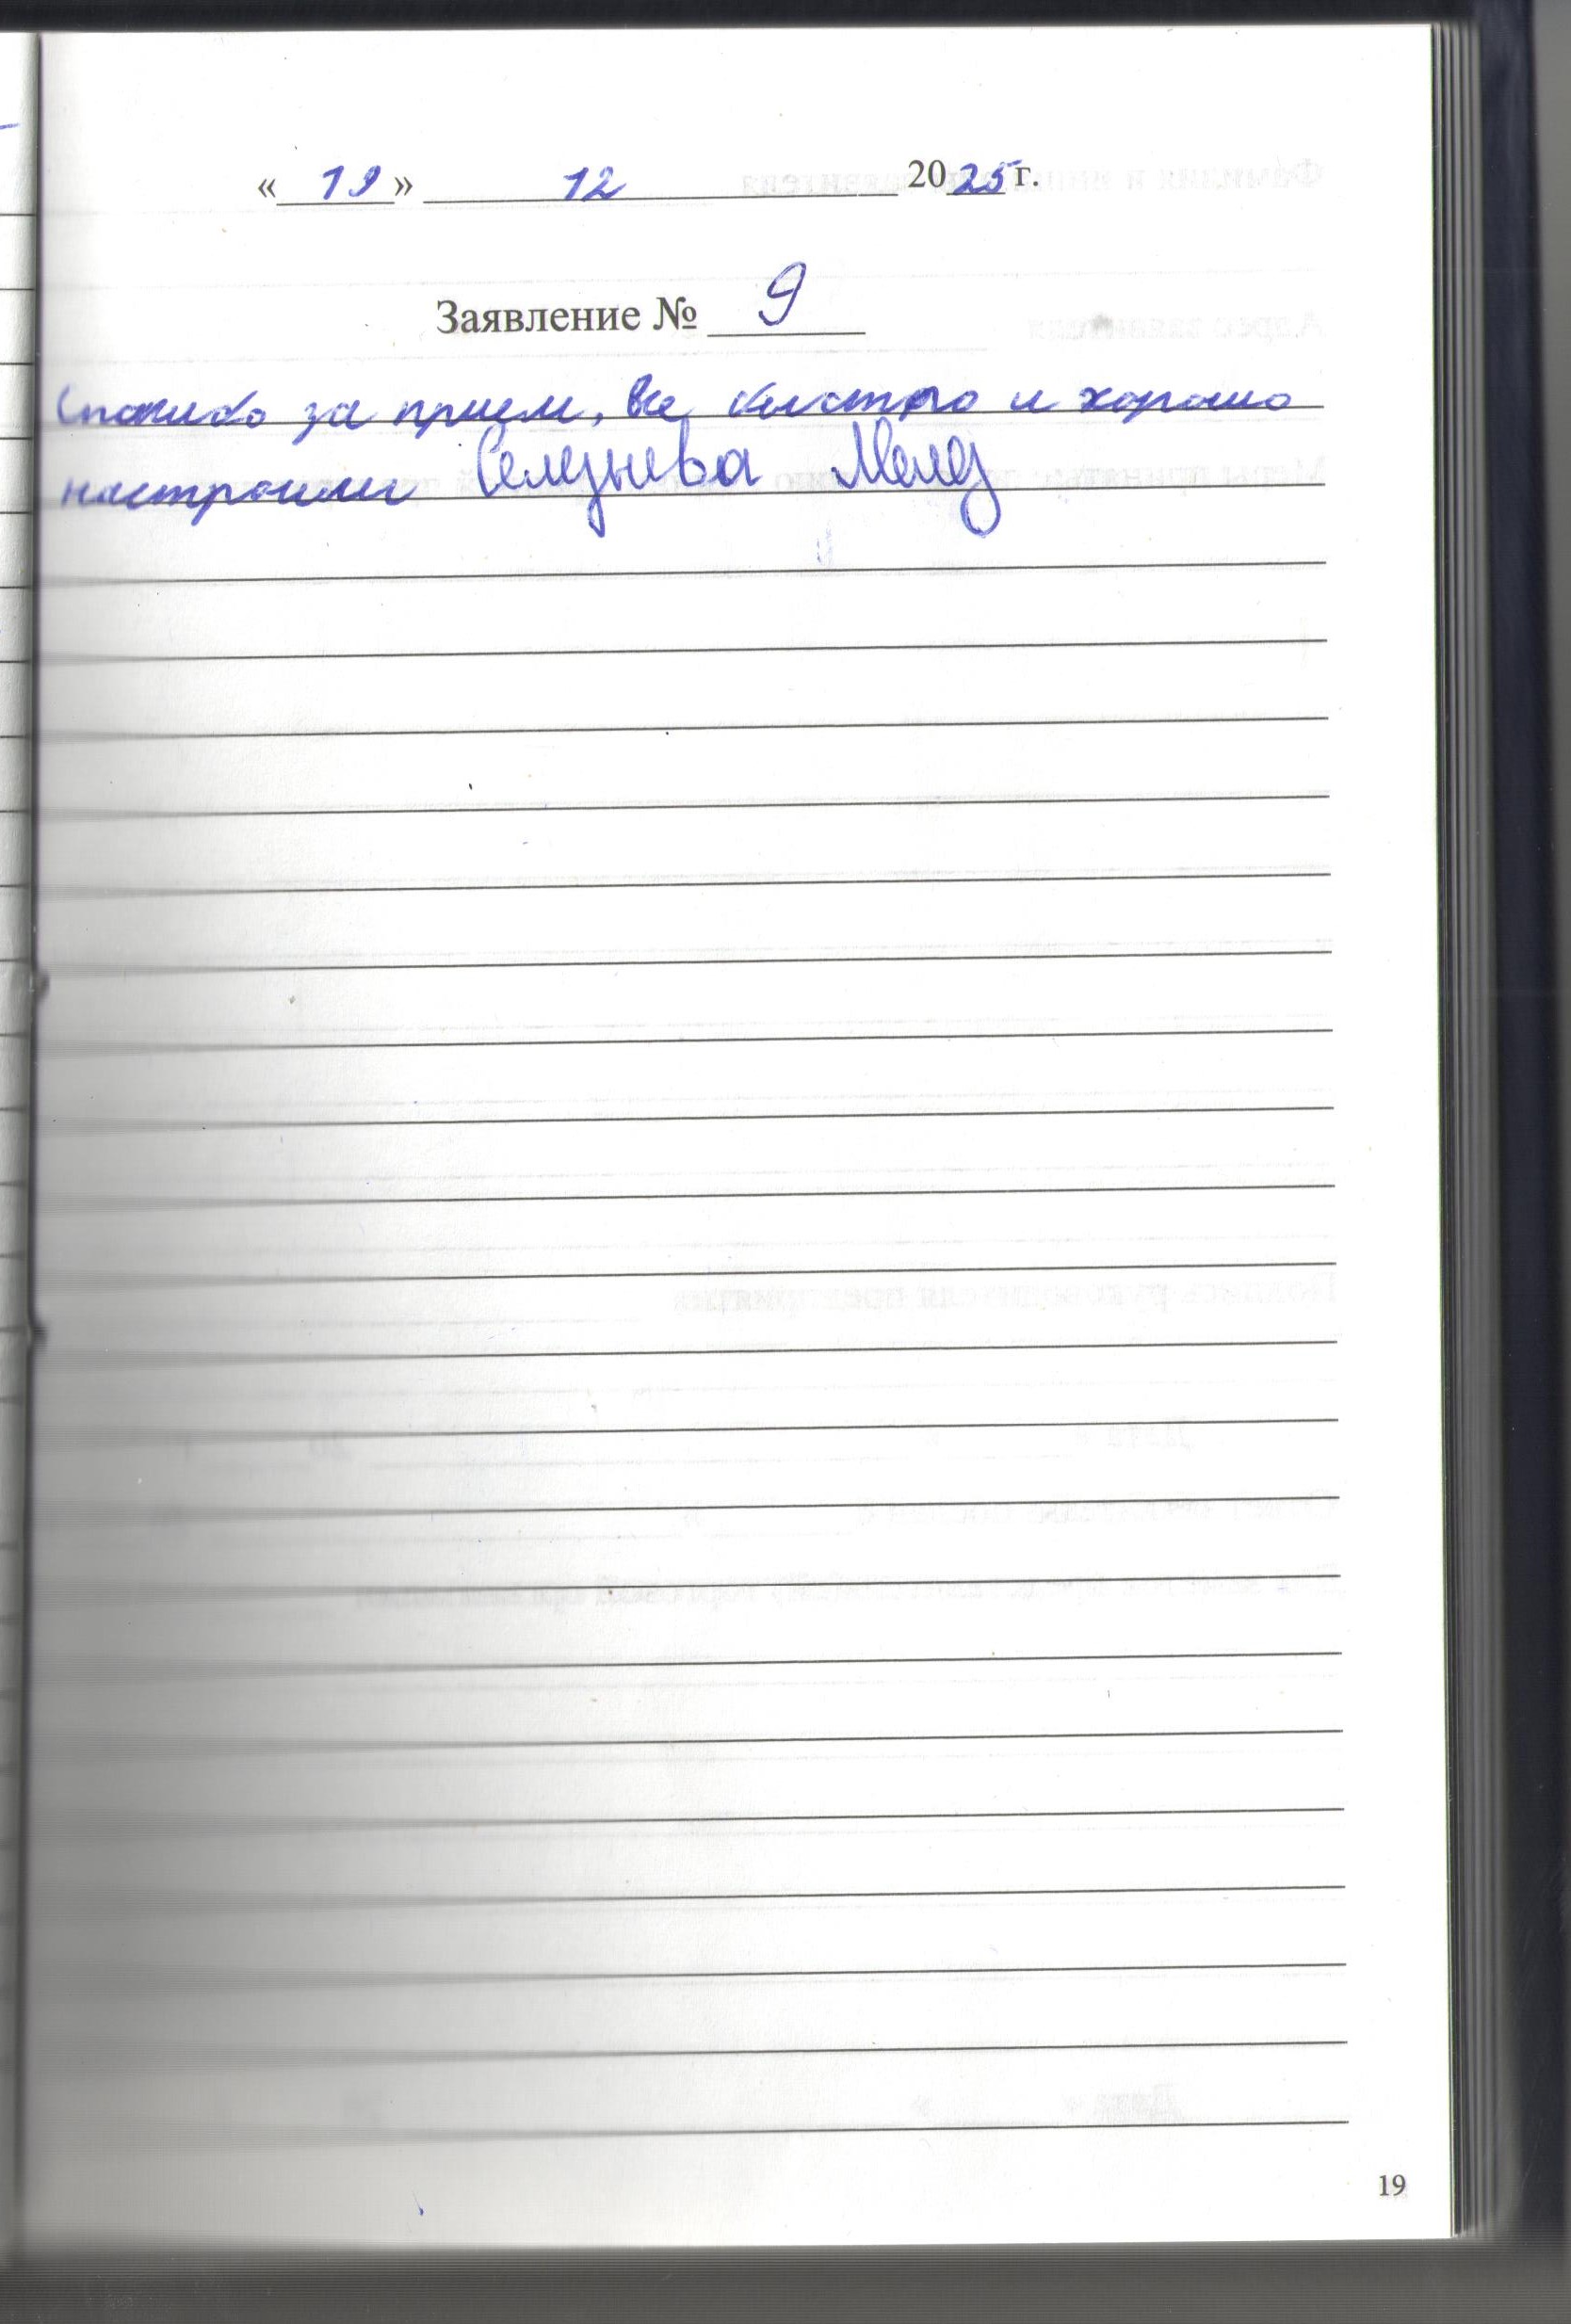 «19» 12 2025 г.
Заявление № 9
Спасибо за прием, все быстро и хорошо
настроили Селезнева
19